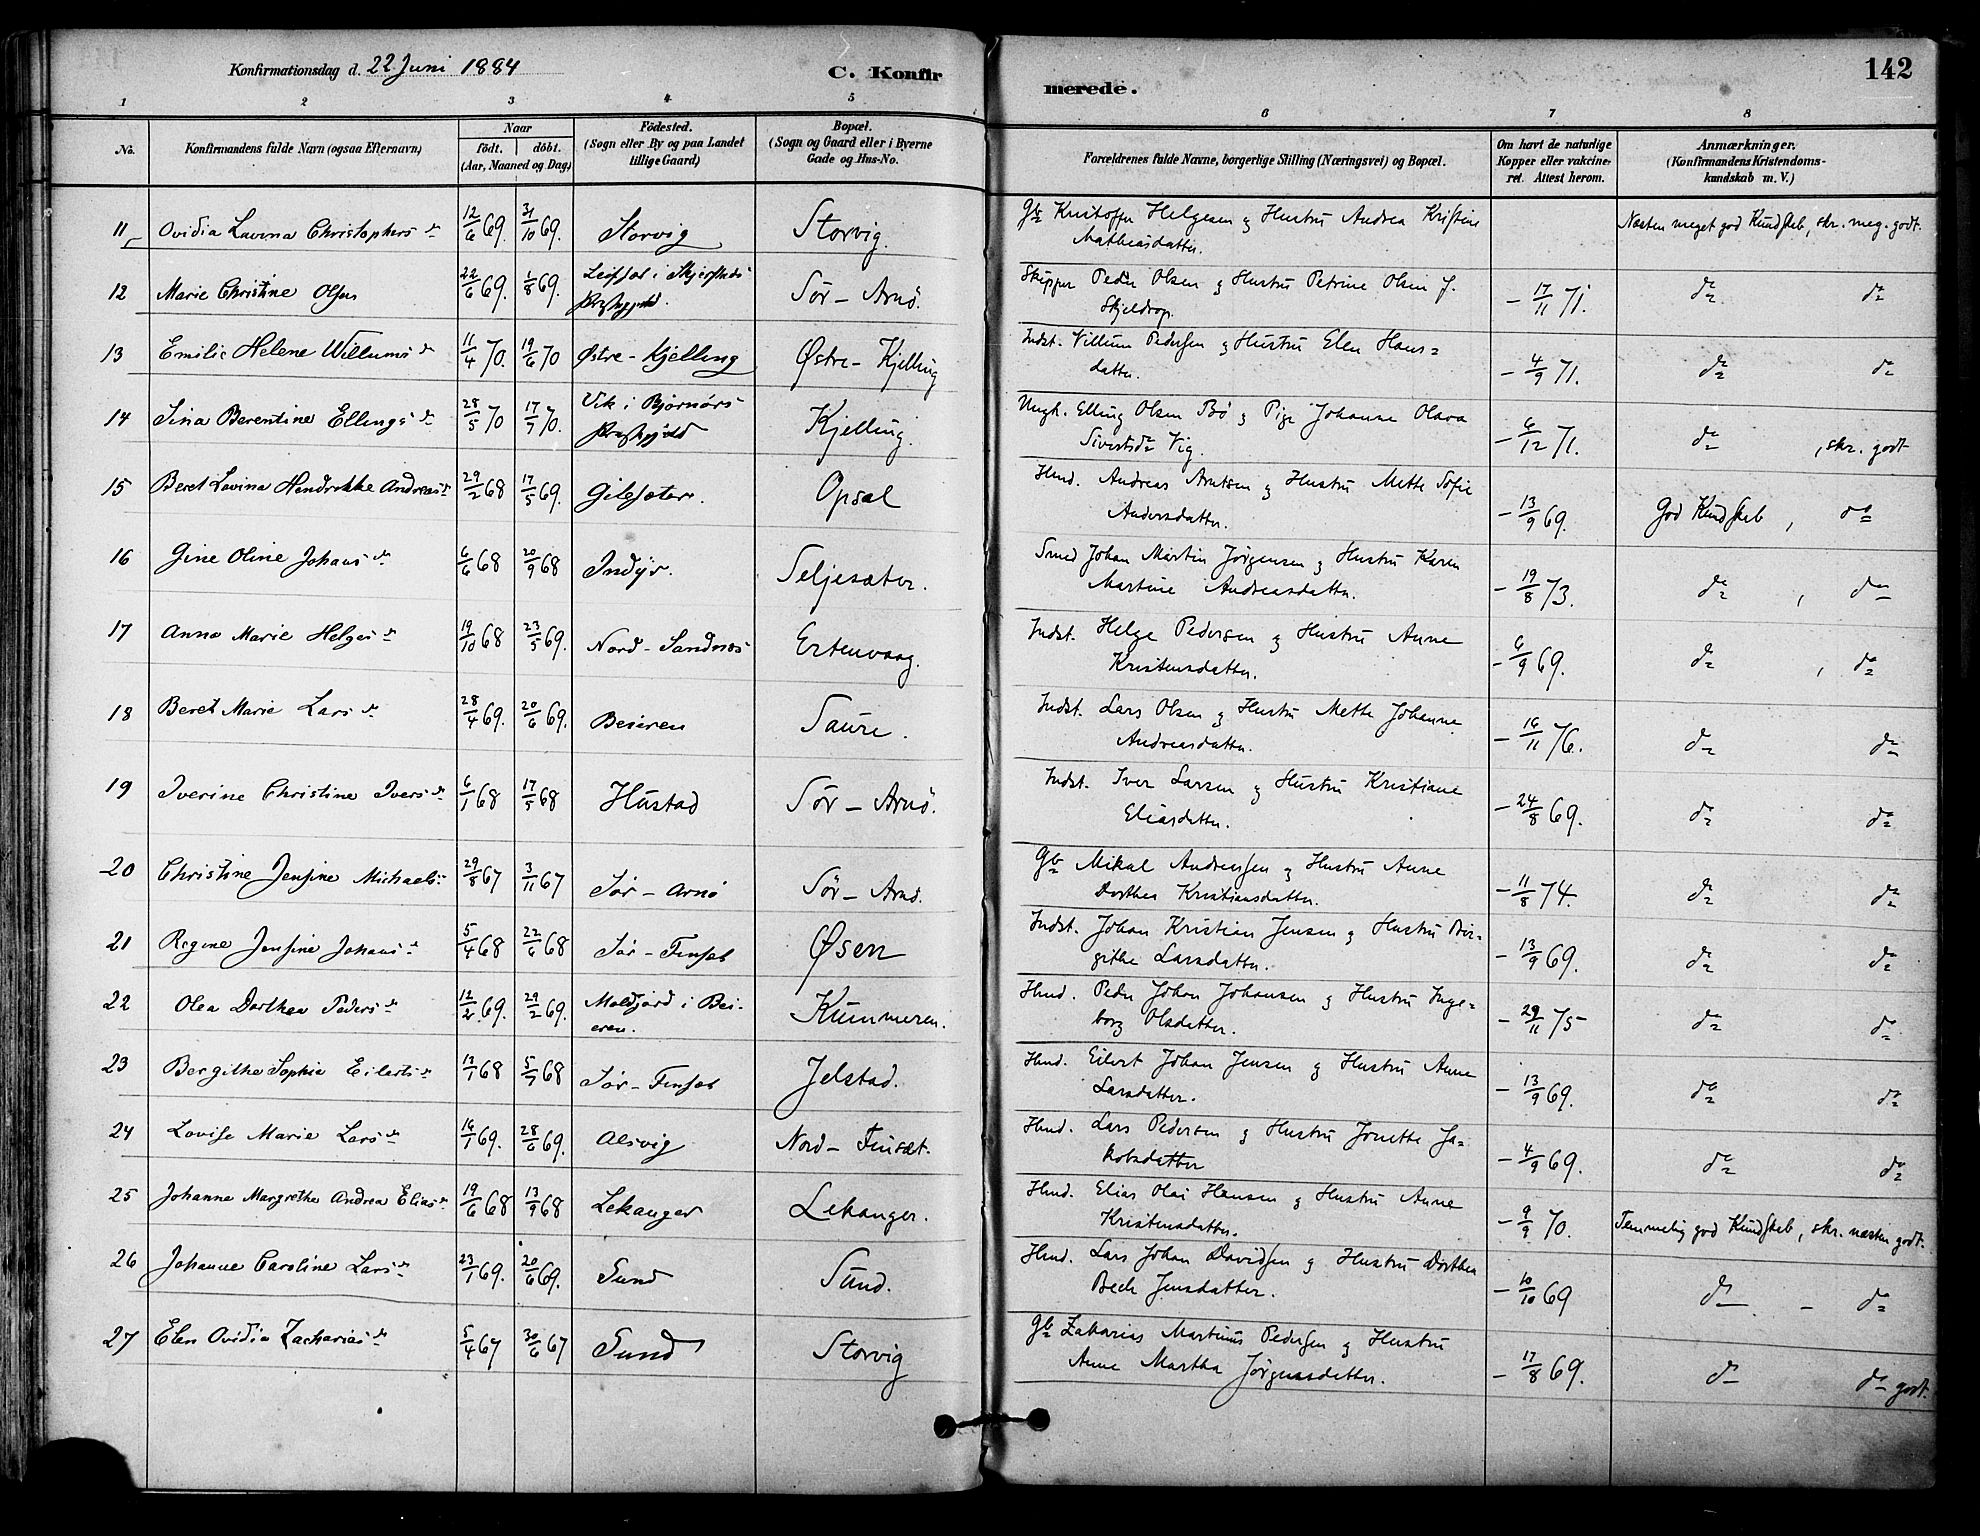 Konfirmationsdag d. 22 Juni 1884
C. Konfir
merede.
142
1 2 3 4 5 6 7 8
No. Konfirmandens fulde Navn (ogsaa Efternavn) Naar født. døbt. (Aar, Maaned og Dag) Fødested. (Sogn eller By og paa Landet tillige Gaard) Bopæl. (Sogn og Gaard eller i Byerne Gade og Hus-No. Forældrenes fulde Navne, borgerlige Stilling (Næringsvei) og Bopæl. Om havt de naturlige Kopper eller vakcineret. Attest herom. Anmærkninger. (Konfirmandens Kristendomskundskab m. V.)
11 Ovidia Lavina Christophers d. 12/6 69. 31/10 69. Storvig Storvig. Gb Kristoffer Helgesen og Hustru Andrea Kristine Mathiasdatter. Næsten meget god Kundskab, skr. meg. godt.
12 Marie Christine Olsen 22/6 69. 1/8 69. i Skjerstad Præstegjeld. Sør-Arnø. Skipper Peder Olsen og Hustru Petrine Olsen f. Skjeldrop. - 17/11 71. do do
13 Emilie Helene Willums d. 11/4 70. 19/6 70 Østre-Kjelling Østre-Kjelling Indst. Villum Pedersen og Hustru Elen Hansdatter. - 4/9 71. do do
14 Sina Berentine Ellings d. 28/5 70 17/7 70. Vik i Bjørnørs Præstegjeld Kjelling. Ungk. Elling Olsen Bø og Pige Johanna Olava Sivertsd. Vig. - 6/12 71. do , skr. godt
15 Beret Lovina Hendrikke Andreas d. 29/2 68 17/5 69. Gilesæter. Opsal Husd. Andreas Arntsen og Hustru Mette Sofie Andersdatter. - 13/9 69. God Kundskab, do
16 Gine Oline Johans d. 6/6 68 20/9 68 Indyr. Seljesæter. Smed Johan Martin Jørgensen og Hustru Karen Martine Andreasdatter. - 19/8 73. do , do
17 Anna Marie Helges d. 19/10 68 23/5 69. Nord-Sandnes Ertenvaag. Indst. Helge Pedersen og Hustru Anne Kristensdatter. - 6/9 69. do , do
18 Beret Marie Lars d. 28/4 69. 20/6 69. Beieren Saure. Indst. Lars Olsen og Hustru Mette Johanna Andreasdatter. - 16/11 76. do do
19 Iverine Christine Ivers d. 6/1 68 17/5 68 Hustad Sør-Arnø. Indst. Iver Larsen og Hustru Kristiane Eliasdatter. - 24/8 69. do do
20 Christine Jensine Michaels 29/8 67 3/11 67 Sør-Arnø Sør-Arnø. Gb Mikal Andreassen og Hustru Anne Dorthea Kristiansdatter. - 11/8 74. do do
21 Regine Jensine Johans d. 5/4 68 22/6 68 Sør-Finset Øsen Indst. Johan Kristian Jensen og Hustru Birgithe Larsdatter. - 13/9 69. do do
22 Olea Dorthea Peders d. 12/2 69. 29/2 69. Moldjord i Beieren. Kummeren. Husd. Peder Johan Johansen og Hustru Ingeborg Olsdatter. - 29/11 75 do do
23 Bergithe Sophie Eilerts d. 13/1 68 5/7 68 Sør-Finset Jelstad. Husd. Eilert Johan Jensen og Hustru Anne Larsdatter. - 13/9 69. do do
24 Lovise Marie Lars d. 16/1 69. 28/6 69. Alsvig Nord-Finset. Husd. Lars Pedersen og Hustru Jonette Jakobsdatter - 4/9 69. do do
25 Johanna Margrethe Andrea Elias d. 19/6 68 13/9 68 Lekanger Lekanger. Husd. Elias Olai Hansen og Hustru Anne Kristensdatter. - 9/9 70. Temmelig god Kundskab, skr. næsten godt.
26 Johanne Caroline Lars d. 23/1 69. 20/6 69. Sund Sund. Husd. Lars Johan Davidsen og Hustru Dorthea Bech Jensdatter. - 10/10 69 do - do
27 Elen Ovidia Zacharias d. 5/4 67 30/6 67 Sund Storvig Gb Zakarias Martinus Pedersen og Hustru Anne Martha Jørgensdatter. - 17/8 69. do do godt.